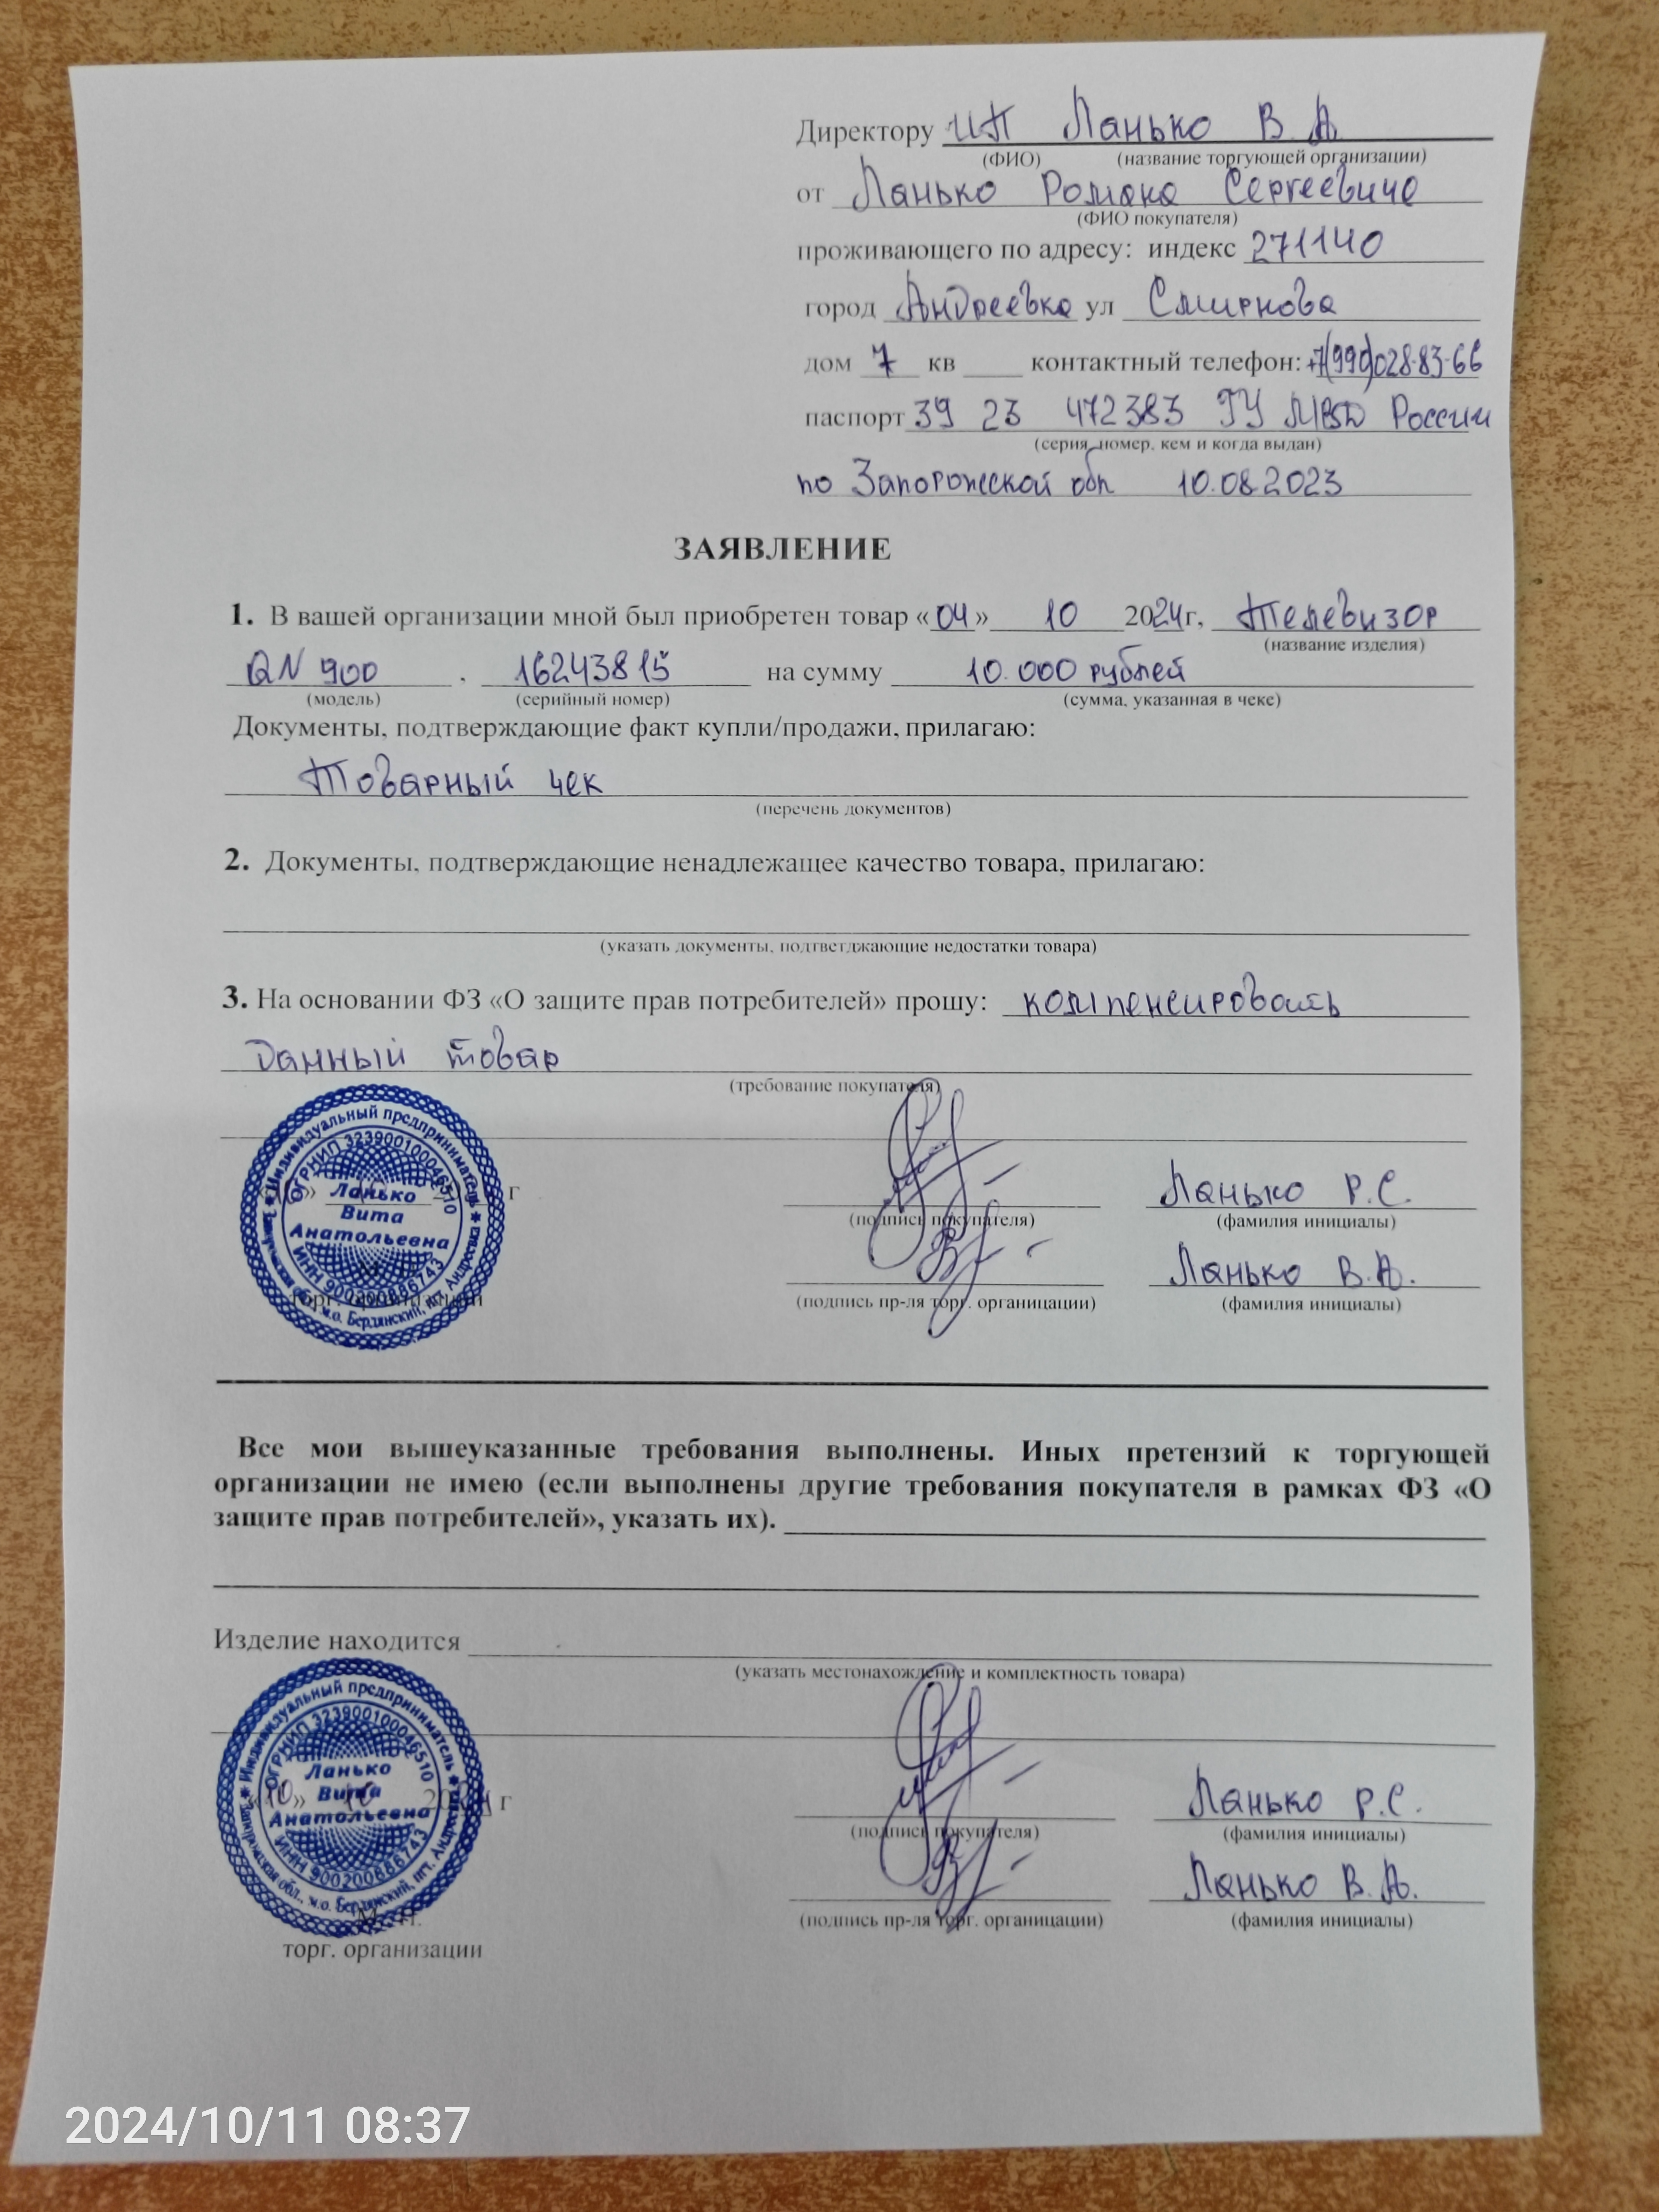 Директору ИП Ланько В А
(ФИО) (название торгующей организации)
от Ланько Романа Сергеевича
(ФИО покупателя)
проживающего по адресу: индекс 271140
город Андреевка ул Смирнова
дом 7 кв ____ контактный телефон: +7(990)028-83-66
паспорт 39 23 472383 ГУ МВД России
(серия, номер, кем и когда выдан)
по Запорожской обл 10.08.2023
ЗАЯВЛЕНИЕ
1. В вашей организации мной был приобретен товар «04» 10 2024г, Телевизор
(название изделия)
QN 900 . 16243815 на сумму 10.000 рублей
(модель) (серийный номер) (сумма, указанная в чеке)
Документы, подтверждающие факт купли/продажи, прилагаю:
Товарный чек
(перечень документов)
2. Документы, подтверждающие ненадлежащее качество товара, прилагаю:
(указать документы, подтветджающие недостатки товара)
3. На основании ФЗ «О защите прав потребителей» прошу: компенсировать
данный товар
(требование покупателя)
* Индивидуальный предприниматель *
ОГРНИП 323900100046510
Ланько
Вита
Анатольевна
ИНН 900200886743
Запорожская обл., м.о. Бердянский, пгт. Андреевка
г
Ланько Р.С.
(подпись покупателя) (фамилия инициалы)
Ланько В.А.
(подпись пр-ля торг. органицации) (фамилия инициалы)
торг. организации
Все мои вышеуказанные требования выполнены. Иных претензий к торгующей
организации не имею (если выполнены другие требования покупателя в рамках ФЗ «О
защите прав потребителей», указать их).
Изделие находится
(указать местонахождение и комплектность товара)
* Индивидуальный предприниматель *
ОГРНИП 323900100046510
Ланько
Вита
Анатольевна
ИНН 900200886743
Запорожская обл., м.о. Бердянский, пгт. Андреевка
«10» 10 2024 г
Ланько Р.С.
(подпись покупателя) (фамилия инициалы)
Ланько В.А.
(подпись пр-ля торг. органицации) (фамилия инициалы)
М.П.
торг. организации
2024/10/11 08:37